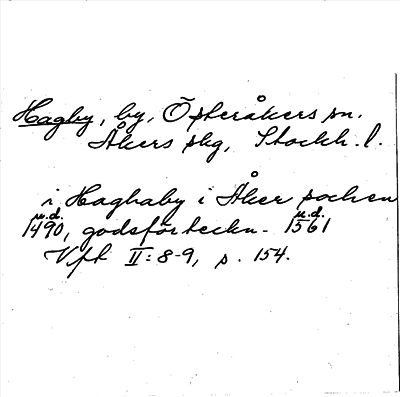 Hagby, by, Österåkers sn.
Åkers skg, Stockh. l.
i Haghaby i Åker socken
u.d. u.d.
1490, godsförteckn. 1561
Vft II: 8-9, s. 154.